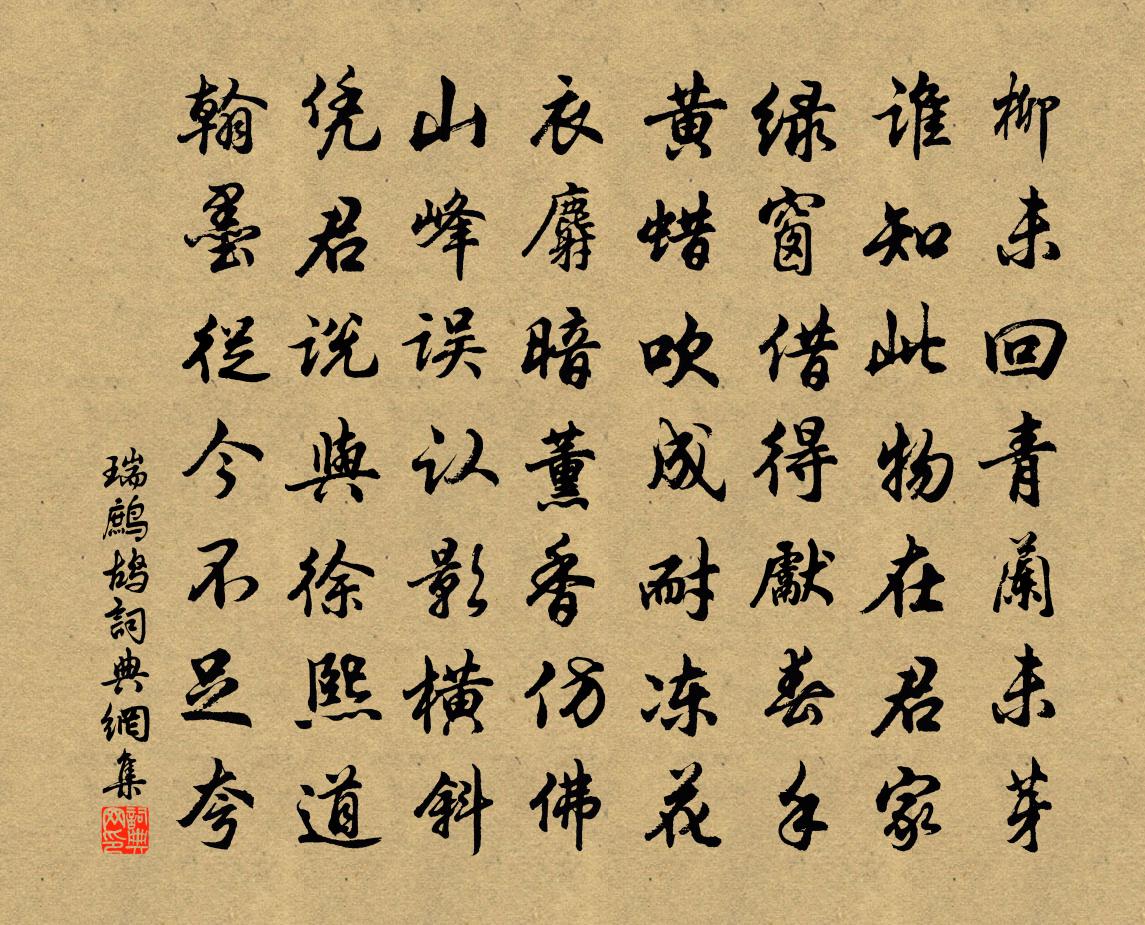 柳未回青兰未芽
谁知此物在君家
绿窗借得献春手
黄蜡吹成耐冻花
衣麝暗薰香仿佛
山峰误认影横斜
凭君说与徐熙道
翰墨从今不足夸
瑞鹧鸪词典网集
词典网印